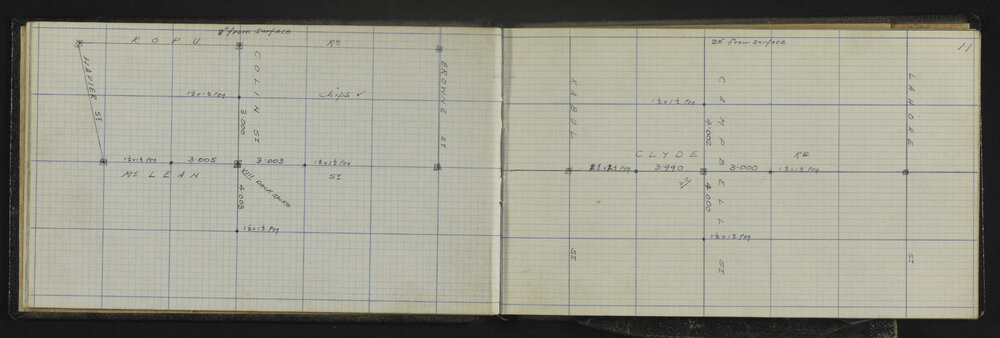 8" from surface
KOPU Rd
NAPIER St
COLIN St
BROWNE St
1½ x 1½ Peg
Chips ✓
3.000
1½ x 1½ Peg
3.005
3.003
1½ x 1½ Peg
Mc LEAN St
4.003
1½ x 1½ Peg
11
20" from surface
KABUL St
CAMPBELL St
LAHORE St
1½ x 1½ Peg
4.002
CLYDE Rd
1½ x 1½ Peg
3.990
3.000
1½ x 1½ Peg
4.000
1½ x 1½ Peg